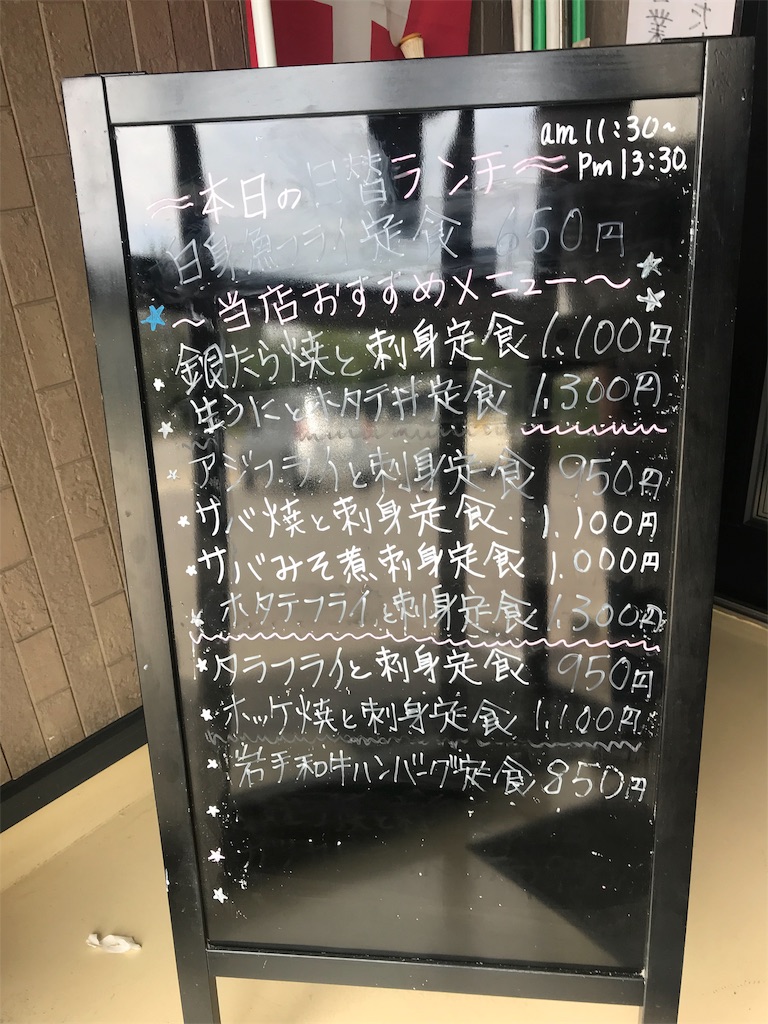 業
am 11:30~
Pm 13:30
~本日の日替ランチ~
白身魚フライ定食 650円
~当店おすすめメニュー~
銀たら焼と刺身定食 1,100円
生うにとホタテ丼定食 1,300円
アジフライと刺身定食 950円
サバ焼と刺身定食‥1,100円
サバみそ煮刺身定食 1,000円
ホタテフライと刺身定食 1,300円
タラフライと刺身定食 950円
ホッケ焼と刺身定食 1,100円
岩手和牛ハンバーグ定食 850円